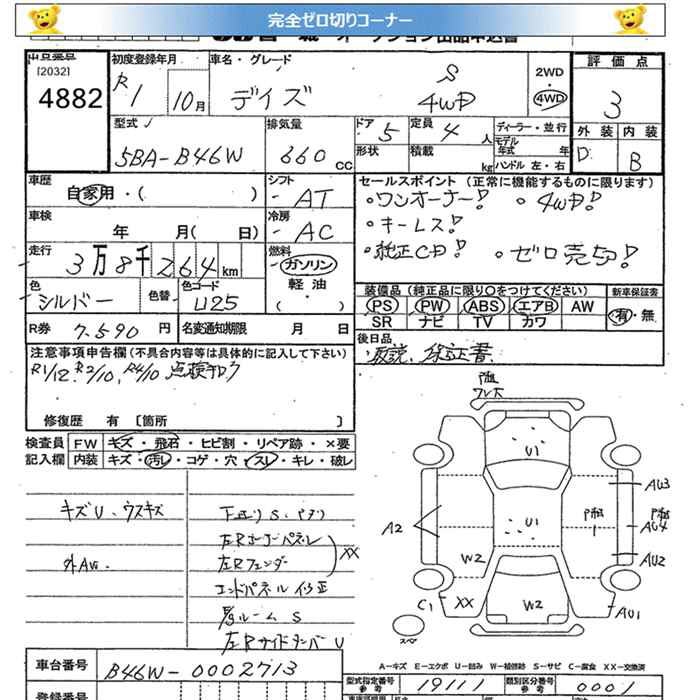 完全ゼロ切りコーナー
出品番号 初度登録年月 車名・グレード 評価点
[2032] S 2WD
4882 R1 10月 デイズ 4WD 4WD 3
型式 排気量 ドア 5 定員 4 人 ディーラー・並行 外装 内装
5BA-B46W 660 CC 形状 積載 kg モデル年式 年 D B
ハンドル 左・右
車歴 シフト セールスポイント (正常に機能するものに限ります)
自家用・( ) AT ・ワンオーナー! ・4WD!
車検 年 月( 日) 冷房 AC ・キーレス!
走行 3万8千264km 燃料 ガソリン ・純正CD! ・ゼロ売切!
色 シルバー 色替 色コード U25 軽油・( )
装備品 (純正品に限り○をつけてください) 新車保証書
PS PW ABS エアB AW 有・無
SR ナビ TV カワ
R券 7.590 円 名変通知期限 月 日
後日品
取説、保証書
注意事項申告欄 (不具合内容等は具体的に記入して下さい)
R1/12. R2/10, R4/10 点検
修復歴 有 [箇所 ]
検査員 FW キズ・飛石・ヒビ割・リペア跡・×要
記入欄 内装 キズ・汚レ・コゲ・穴・スレ・キレ・破レ
キズU、ウスキズ
下廻りS・
左Rコーナーパネル
左Rフェンダー XX
外AU
エンドパネル修正
ルームS
左RサイドメンバーU
U1
AU3
A2
U1
AU4
W2
AU2
C1 XX
W2
AU1
スペア
A-キズ E-エクボ U-凹み W-補修跡 S-サビ C-腐食 XX-交換済
車台番号 B46W-0002713
型式指定番号 参考 19111 類別区分番号 参考 0001
登録番号